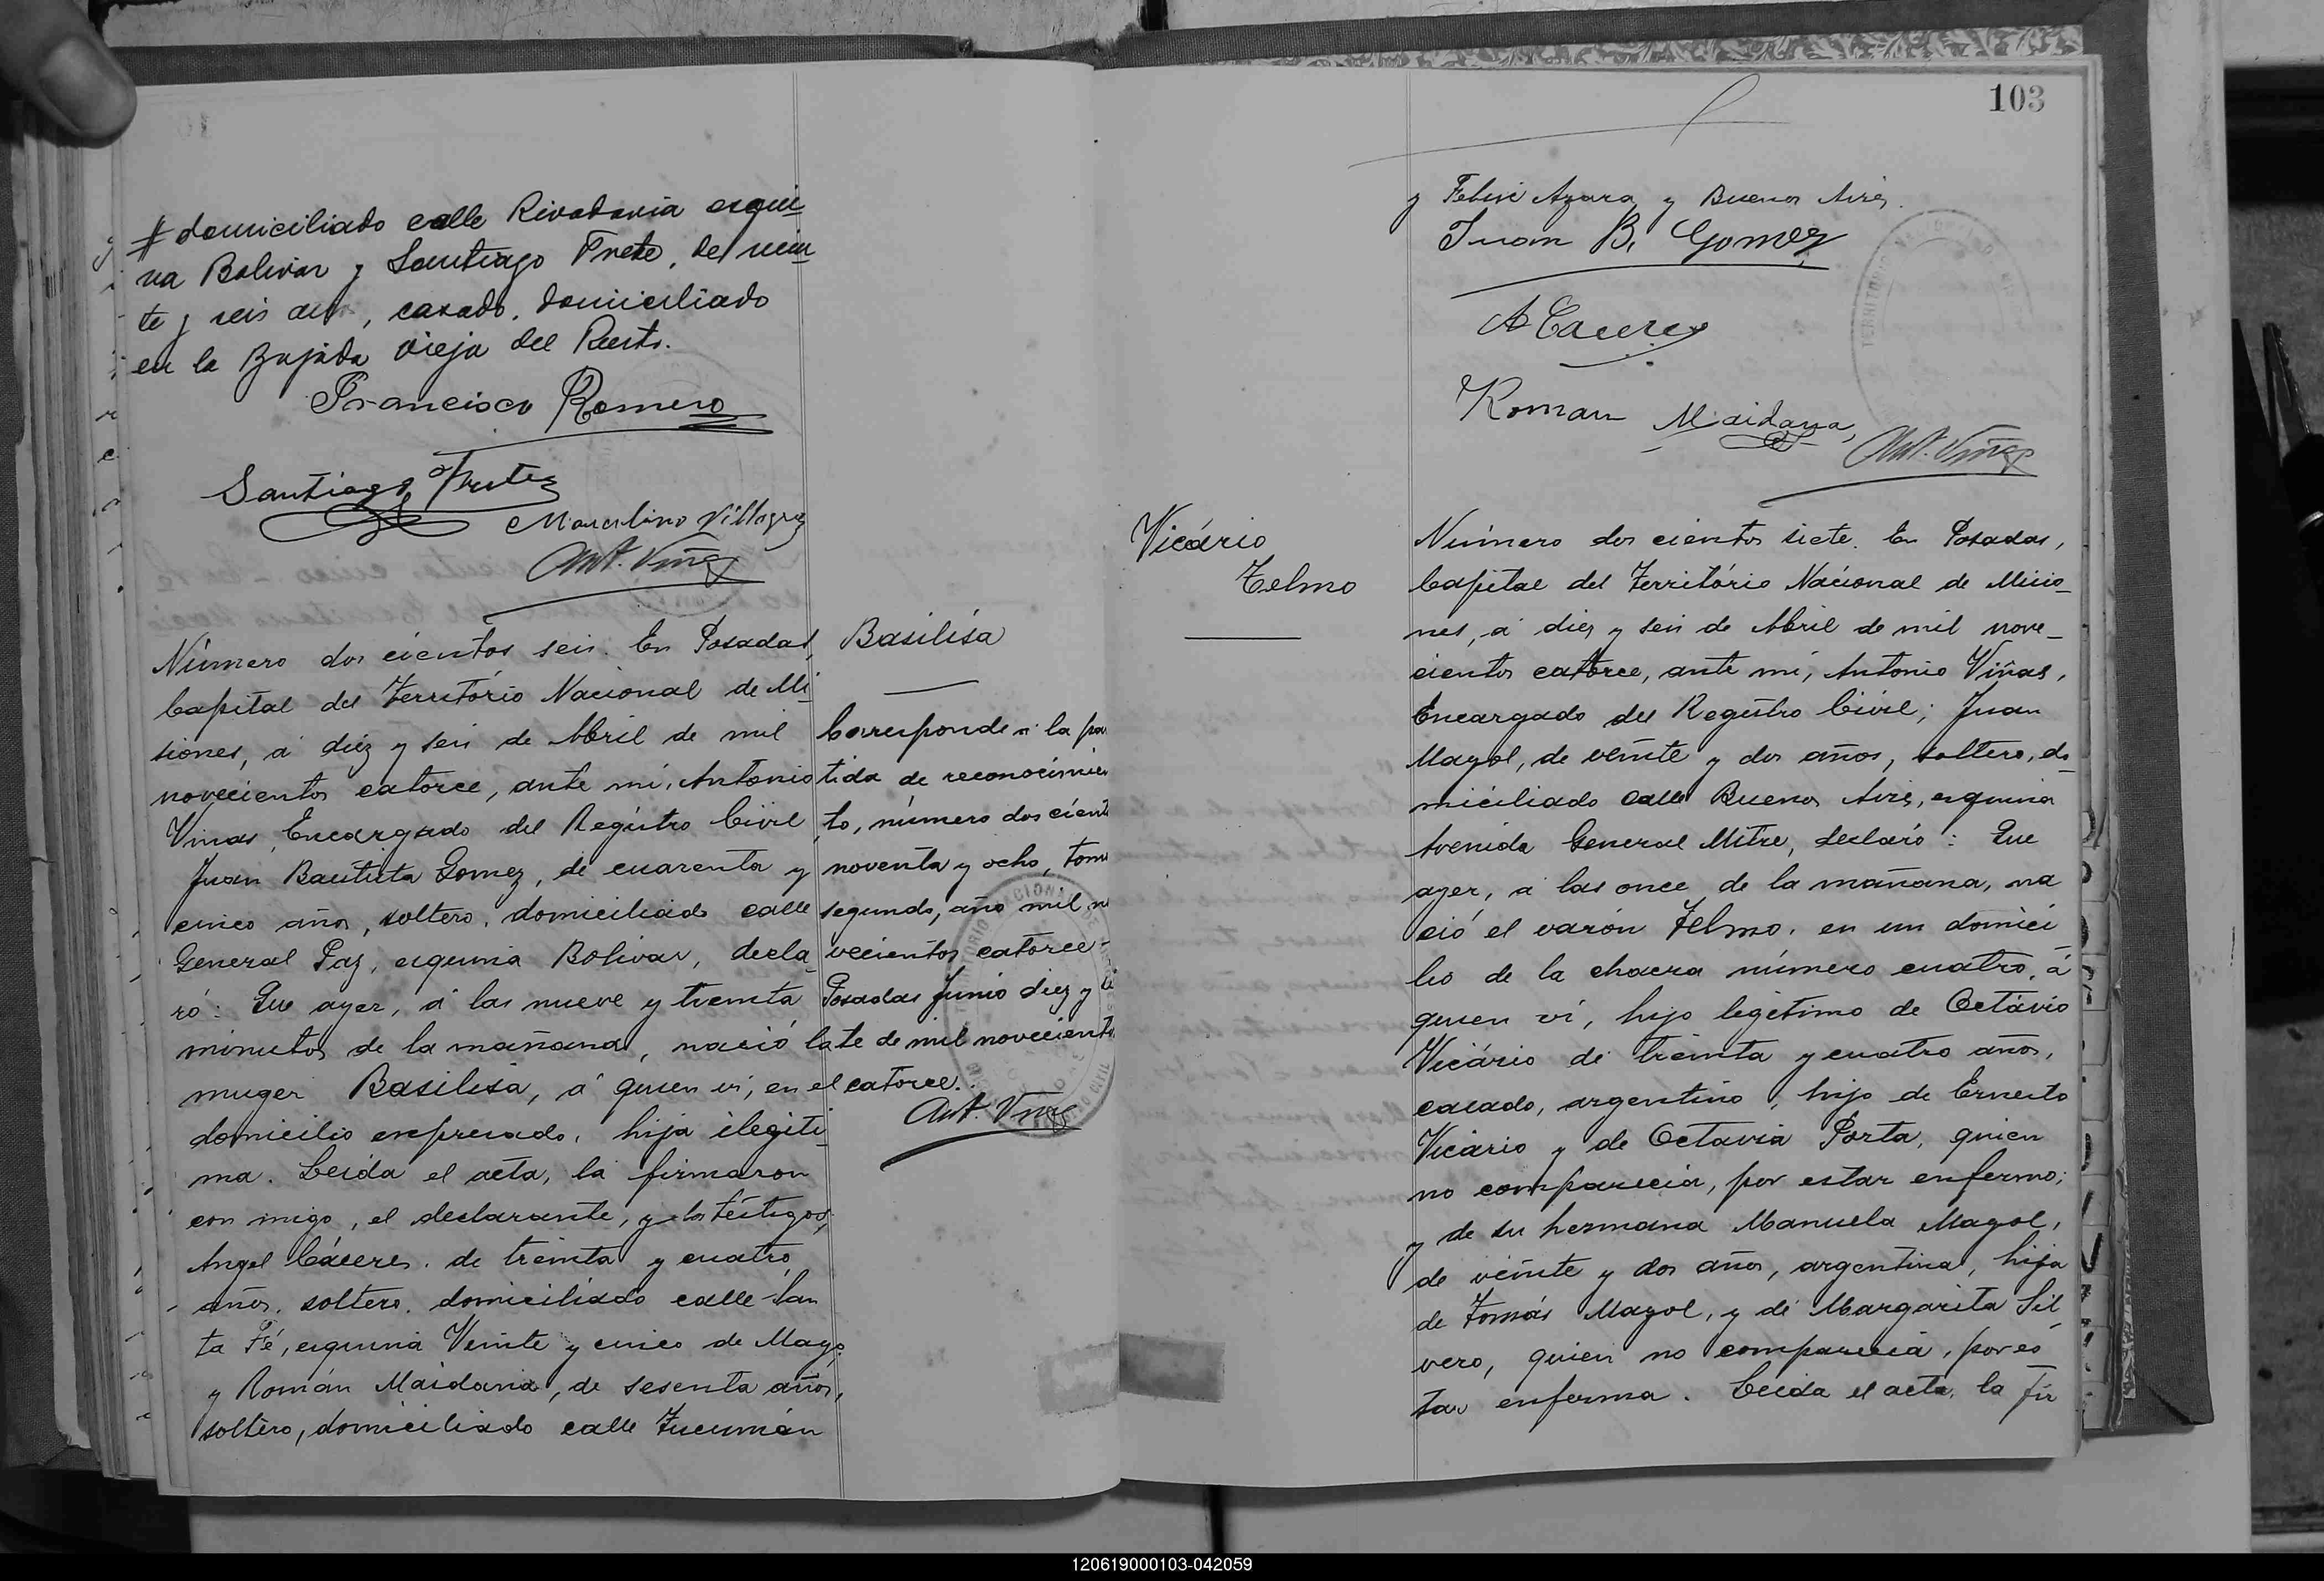 # domiciliado calle Rivadavia esqui-
na Bolivar y Santiago Frete, de vein-
te y seis años, casado, domiciliado
en la Bajada vieja del Puerto.
Francisco Romero
Santiago Fretes
Marcelino Villagra
Ant. Viñas
Número dos cientos seis. En Posadas,
Capital del Território Nacional de Mi-
siones, á diéz y seis de Abril de mil
novecientos catorce, ante mí, Antonio
Viñas, Encargado del Registro Civil
Juan Bautista Gomez, de cuarenta y
cinco años, soltero, domiciliado calle
General Paz, esquina Bolivar, decla-
ró: Que ayer, á las nueve y treinta
minutos de la mañana, nació la
muger Basilisa, á quien ví, en el
domicilio expresado, hija ilegíti-
ma. Leida el acta, la firmaron
con migo, el declarante, y los téstigos,
Angel Cáceres, de treinta y cuatro
años, soltero, domiciliado calle San
ta Fé, esquina Veinte y cinco de Mayo,
y Román Maidana, de sesenta años,
soltero, domiciliado calle Tucumán
Basilísa
Corresponde á la par
tida de reconocimien
to, número dos cient
noventa y ocho, tomo
segundo, año mil no
vecientos catorce-
Posadas Junio diez y si
te de mil novecientos
catorce.
Ant. Viñas
103
y Felix Azara y Buenos Aires.
Juan B. Gomez
A Caceres
Roman Maidana,
Ant. Viñas
Vicário
Telmo
Número dos cientos siete. En Posadas,
Capital del Território Nacional de Misio-
nes, á diez y seis de Abril de mil nove-
cientos catorce, ante mí, Antonio Viñas,
Encargado del Registro Civil; Juan
Mayol, de veinte y dos años, soltero, do-
miciliado calle Buenos Aires, esquina
Avenida General Mitre, declaró: Que
ayer, á las once de la mañana, na
ció el varón Telmo, en un domici
lio de la chacra número cuatro, á
quien ví, hijo legítimo de Octávio
Vicário de treinta y cuatro años,
casado, argentino, hijo de Ernesto
Vicário y de Octavia Porta, quien
no comparecia, por estar enfermo;
y de su hermana Manuela Mayol,
de veinte y dos años, argentina, hija
de Tomás Mayol, y de Margarita Sil
vero, quien no comparecia, por es
tar enferma. Leida el acta, la fir
120619000103-042059